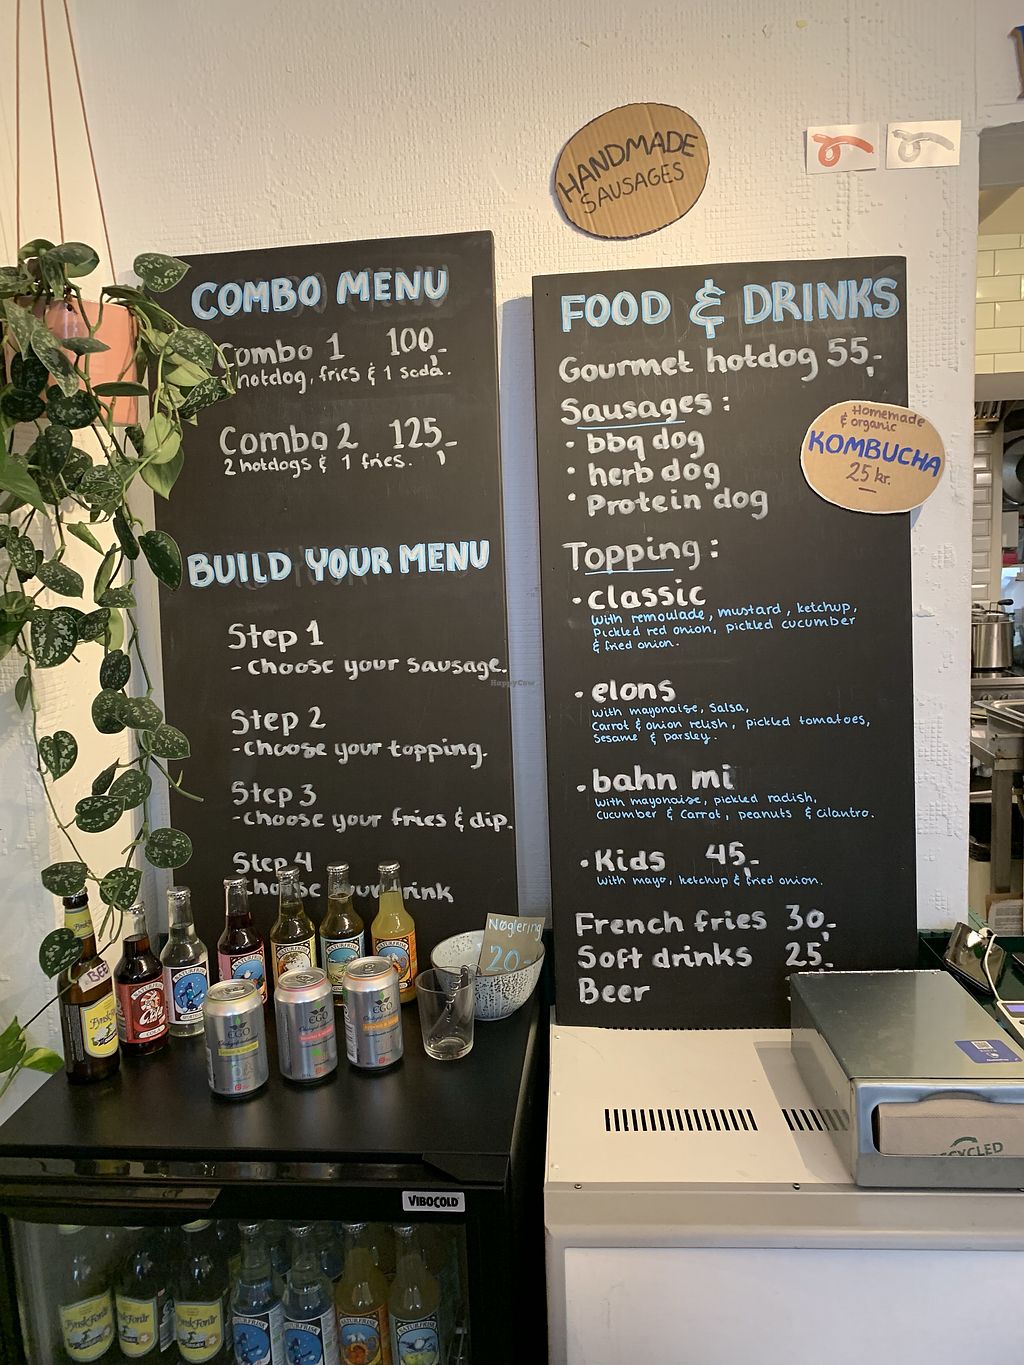 HANDMADE
SAUSAGES
COMBO MENU
Combo 1 100,-
hotdog, fries & 1 soda.
Combo 2 125,-
2 hotdogs & 1 fries.
BUILD YOUR MENU
Step 1
- choose your sausage.
Step 2
- choose your topping.
Step 3
- choose your fries & dip.
Step 4
choose your drink
FOOD & DRINKS
Gourmet hotdog 55,-
Sausages :
• bbq dog
• herb dog
• Protein dog
Homemade
& organic
KOMBUCHA
25 kr.
Topping :
• classic
with remoulade, mustard, ketchup,
Pickled red onion, pickled cucumber
& fried onion.
• elons
with mayonaise, Salsa,
Carrot & onion relish, pickled tomatoes,
Sesame & parsley.
• bahn mi
with mayonaise, pickled radish,
cucumber & carrot, peanuts & cilantro.
• Kids 45,-
with mayo, ketchup & fried onion.
French fries 30,-
Soft drinks 25,-
Beer
Nøglering
20,-
BEER
EGO
EGO
EGO
VIBOCOLD
HappyCow